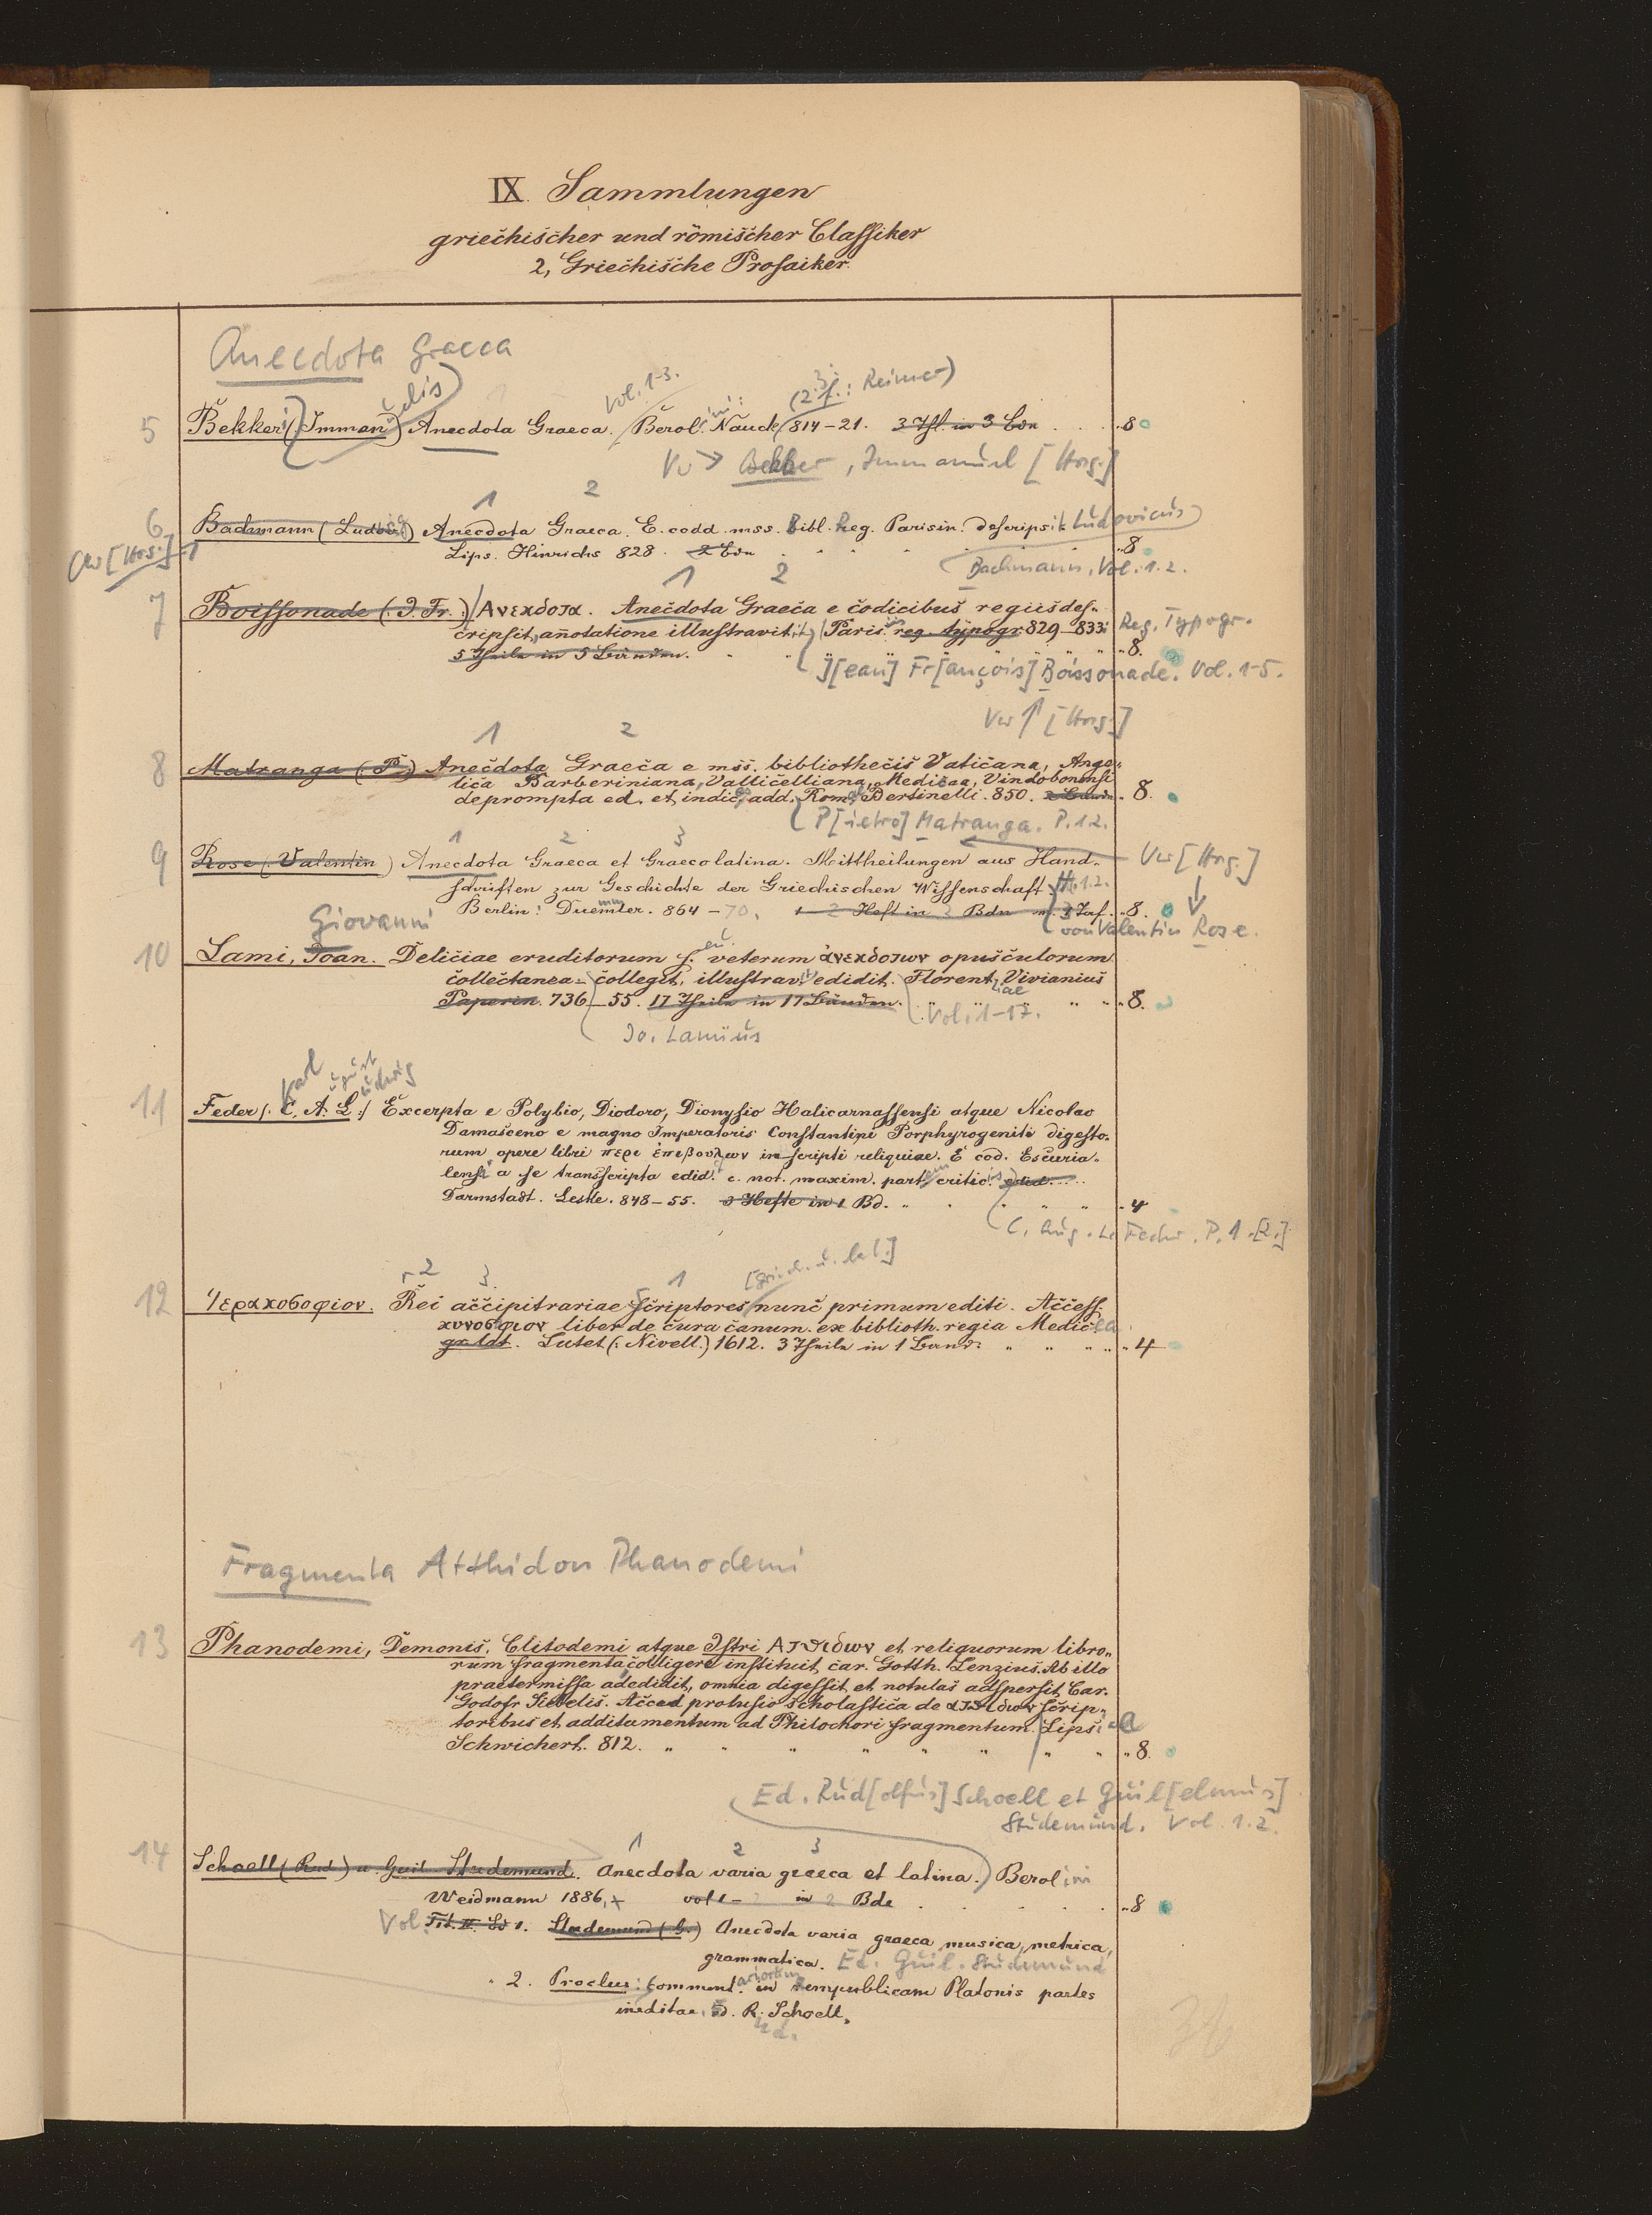 IX. Sammlungen
griechischer und römischer Classiker
2, Griechische Prosaiker.
Anecdota Graeca
Vol. 1-3.
(2.3.: Reimer)
5 Bekkeri (Immanuelis) Anecdota Graeca. Berolini: Nauck 814-21. 3 Thl. in 3 Bdn . . . 8
Vw → Bekker, Immanuel [Hrsg.]
1 2
6 Bachmann (Ludov.) Anecdota Graeca. E. codd. mss. Bibl. Reg. Parisin. descripsit Ludovicus
Lips. Hinrichs 828. 2 Bdn . . . . . 8
Vw [Hrsg.]
Bachmann, Vol. 1.2.
1 2
7 Boissonade (J. Fr.) Ανεκδοτα. Anecdota Graeca e codicibus regiis des-
cripsit, annotatione illustravit Paris. reg. typogr. 829-833. Reg. Typogr.
5 Theile in 5 Bänden. " " " " " 8.
J[ean] Fr[ançois] Boissonade. Vol. 1-5.
Vw ↑ [Hrsg.]
1 2
8 Matranga (P.) Anecdota Graeca e mss. bibliothecis Vaticana, Ange-
lica Barberiniana, Vallicelliana, Medicea, Vindobonensi
deprompta ed. et indic. add. Rom. Bertinelli. 850. 2 Bände. 8.
P[ietro] Matranga. P. 1.2.
1 2 3
9 Rose (Valentin) Anecdota Graeca et Graecolatina. Mittheilungen aus Hand- Vw [Hrsg.]
schriften zur Geschichte der Griechischen Wissenschaft H. 1.2.
Berlin: Duemmler. 864-70. 1-2 Heft in 2 Bdn m. 3 Taf. 8.
von Valentin Rose.
Giovanni
10 Lami, Joan. Deliciae eruditorum s. veterum ἀνεκδοτων opusculorum
collectanea. collegit, illustravit edidit. Florentiae Vivianius
Paperin. 736-55. 17 Theile in 17 Bänden. " " " 8.
Vol. 1-17.
Jo. Lamius
Karl August Ludwig
11 Feder (C. A. L.) Excerpta e Polybio, Diodoro, Dionysio Halicarnassensi atque Nicolao
Damasceno e magno Imperatoris Constantini Porphyrogeniti digesto-
rum opere libri περι ἐπιβουλων inscripti reliquiae. E cod. Escuria-
lensi a se transscripta edid. c. not. maxim. partem critic.
Darmstadt. Leske. 848-55. 3 Hefte in 1 Bd. " . . " " 4
C. Aug. L. Feder. P. 1.[2.]
2 3 1 [griech. u. lat.]
12 Ἱερακοσοφιον. Rei accipitrariae scriptores nunc primum editi. Access.
κυνοσοφιον liber de cura canum. ex biblioth. regia Medicea
gr. lat. Lutet. (Nivell.) 1612. 3 Theile in 1 Band. " " " " 4
Fragmenta Atthidon Phanodemi
13 Phanodemi, Demonis, Clitodemi atque Istri Ατθιδων et reliquorum libro-
rum fragmenta colligere instituit car. Gotth. Lenzius. Ab illo
praetermissa addidit, omnia digessit et notulas adspersit Car.
Godofr Siebelis. Acced. prolusio scholastica de ατθιδων scrip-
toribus et additamentum ad Philochori fragmentum. Lips.
Schwichert. 812. " " " " " " " " 8.
Ed. Rud[olfus] Schoell et Guil[elmus]
Studemund. Vol. 1.2.
1 2 3
14 Schoell (Rud.) u. Guil. Studemund. Anecdota varia graeca et latina. Berolini
Weidmann 1886. vol 1-2 in 2 Bde . . . . 8
Vol. Tit. II. Bd 1. Studemund (G.) Anecdota varia graeca musica, metrica,
grammatica. Ed. Guil. Studemund
" 2. Proclus: Commentariorum in rempublicam Platonis partes
ineditae, Ed. R. Schoell.
Ed.